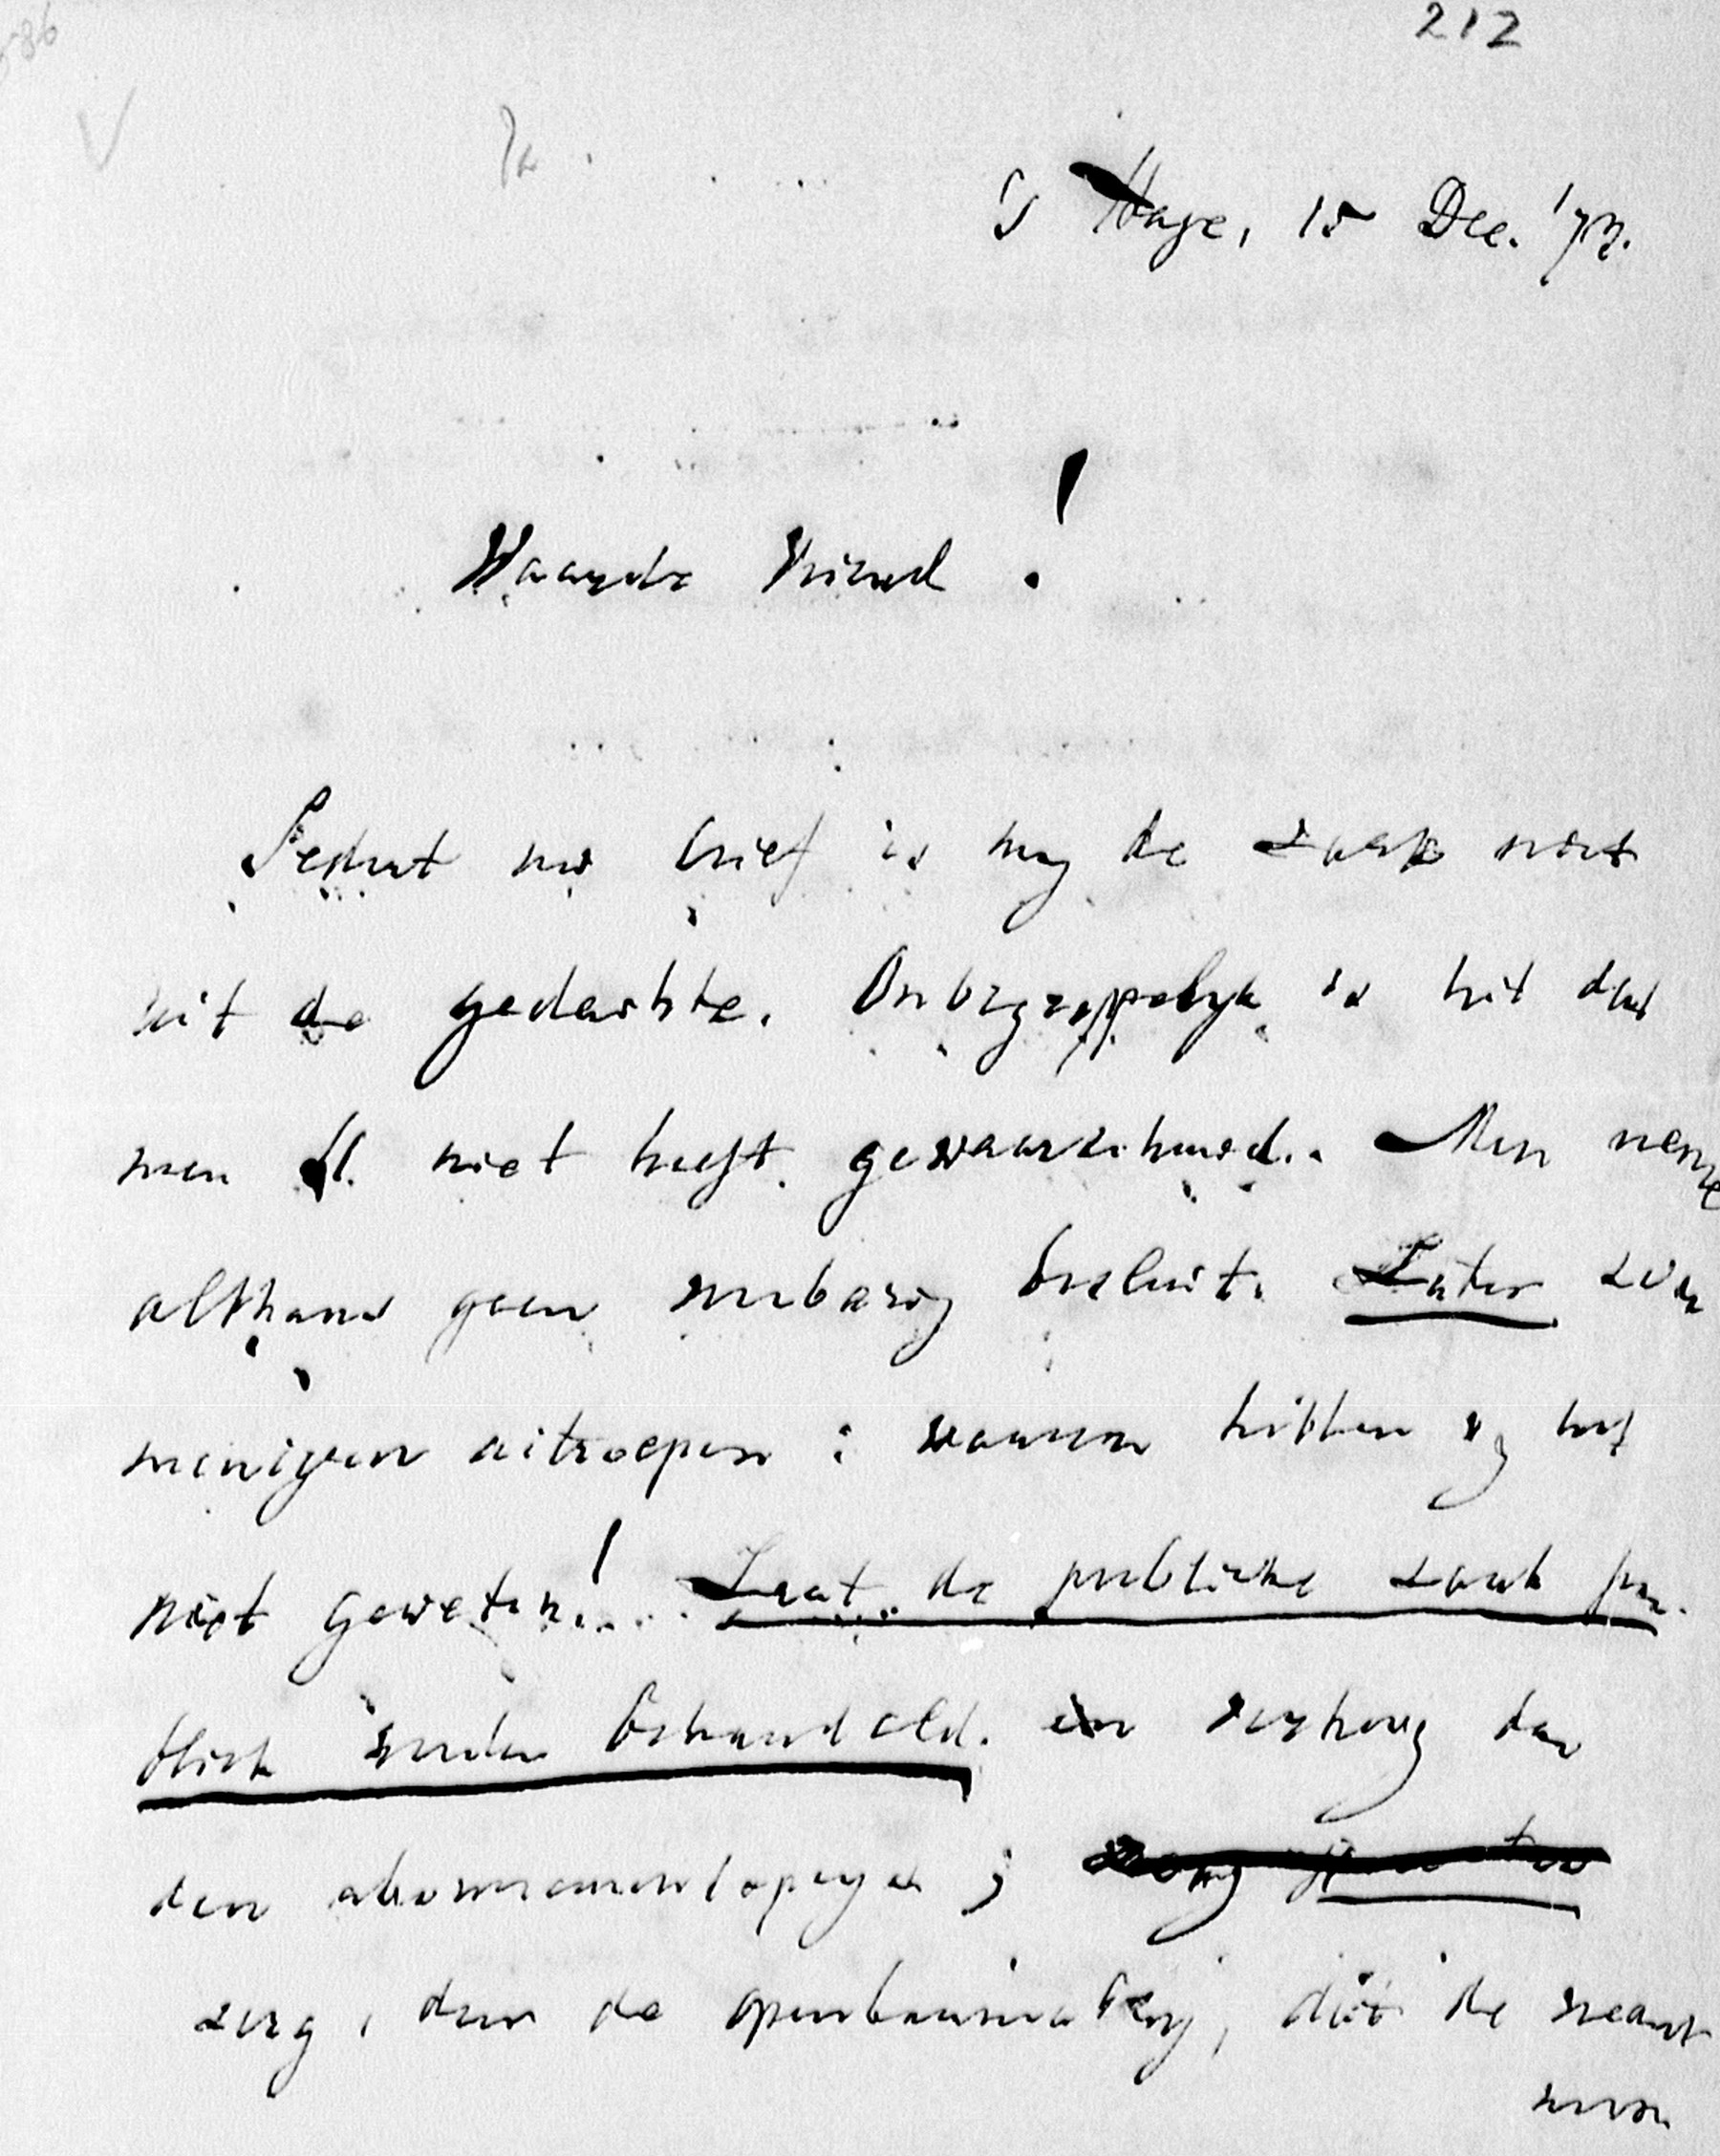 212
's Hage, 15 Dec. '73.
Waarde Vriend!
Sedert uw brief is my de zaak niet
uit de gedachte. Onbegrijpelyk is het dat
men U niet heeft gewaarschuwd. Men neme
althans geen onberaden besluit. Later zou
menigeen uitroepen: waarom hebben wy het
niet geweten! Laat de publieke zaak pu-
bliek worden behandeld. en verhoog dan
den abonnementsprys;
zorg, door de openbaarmaking, dat de